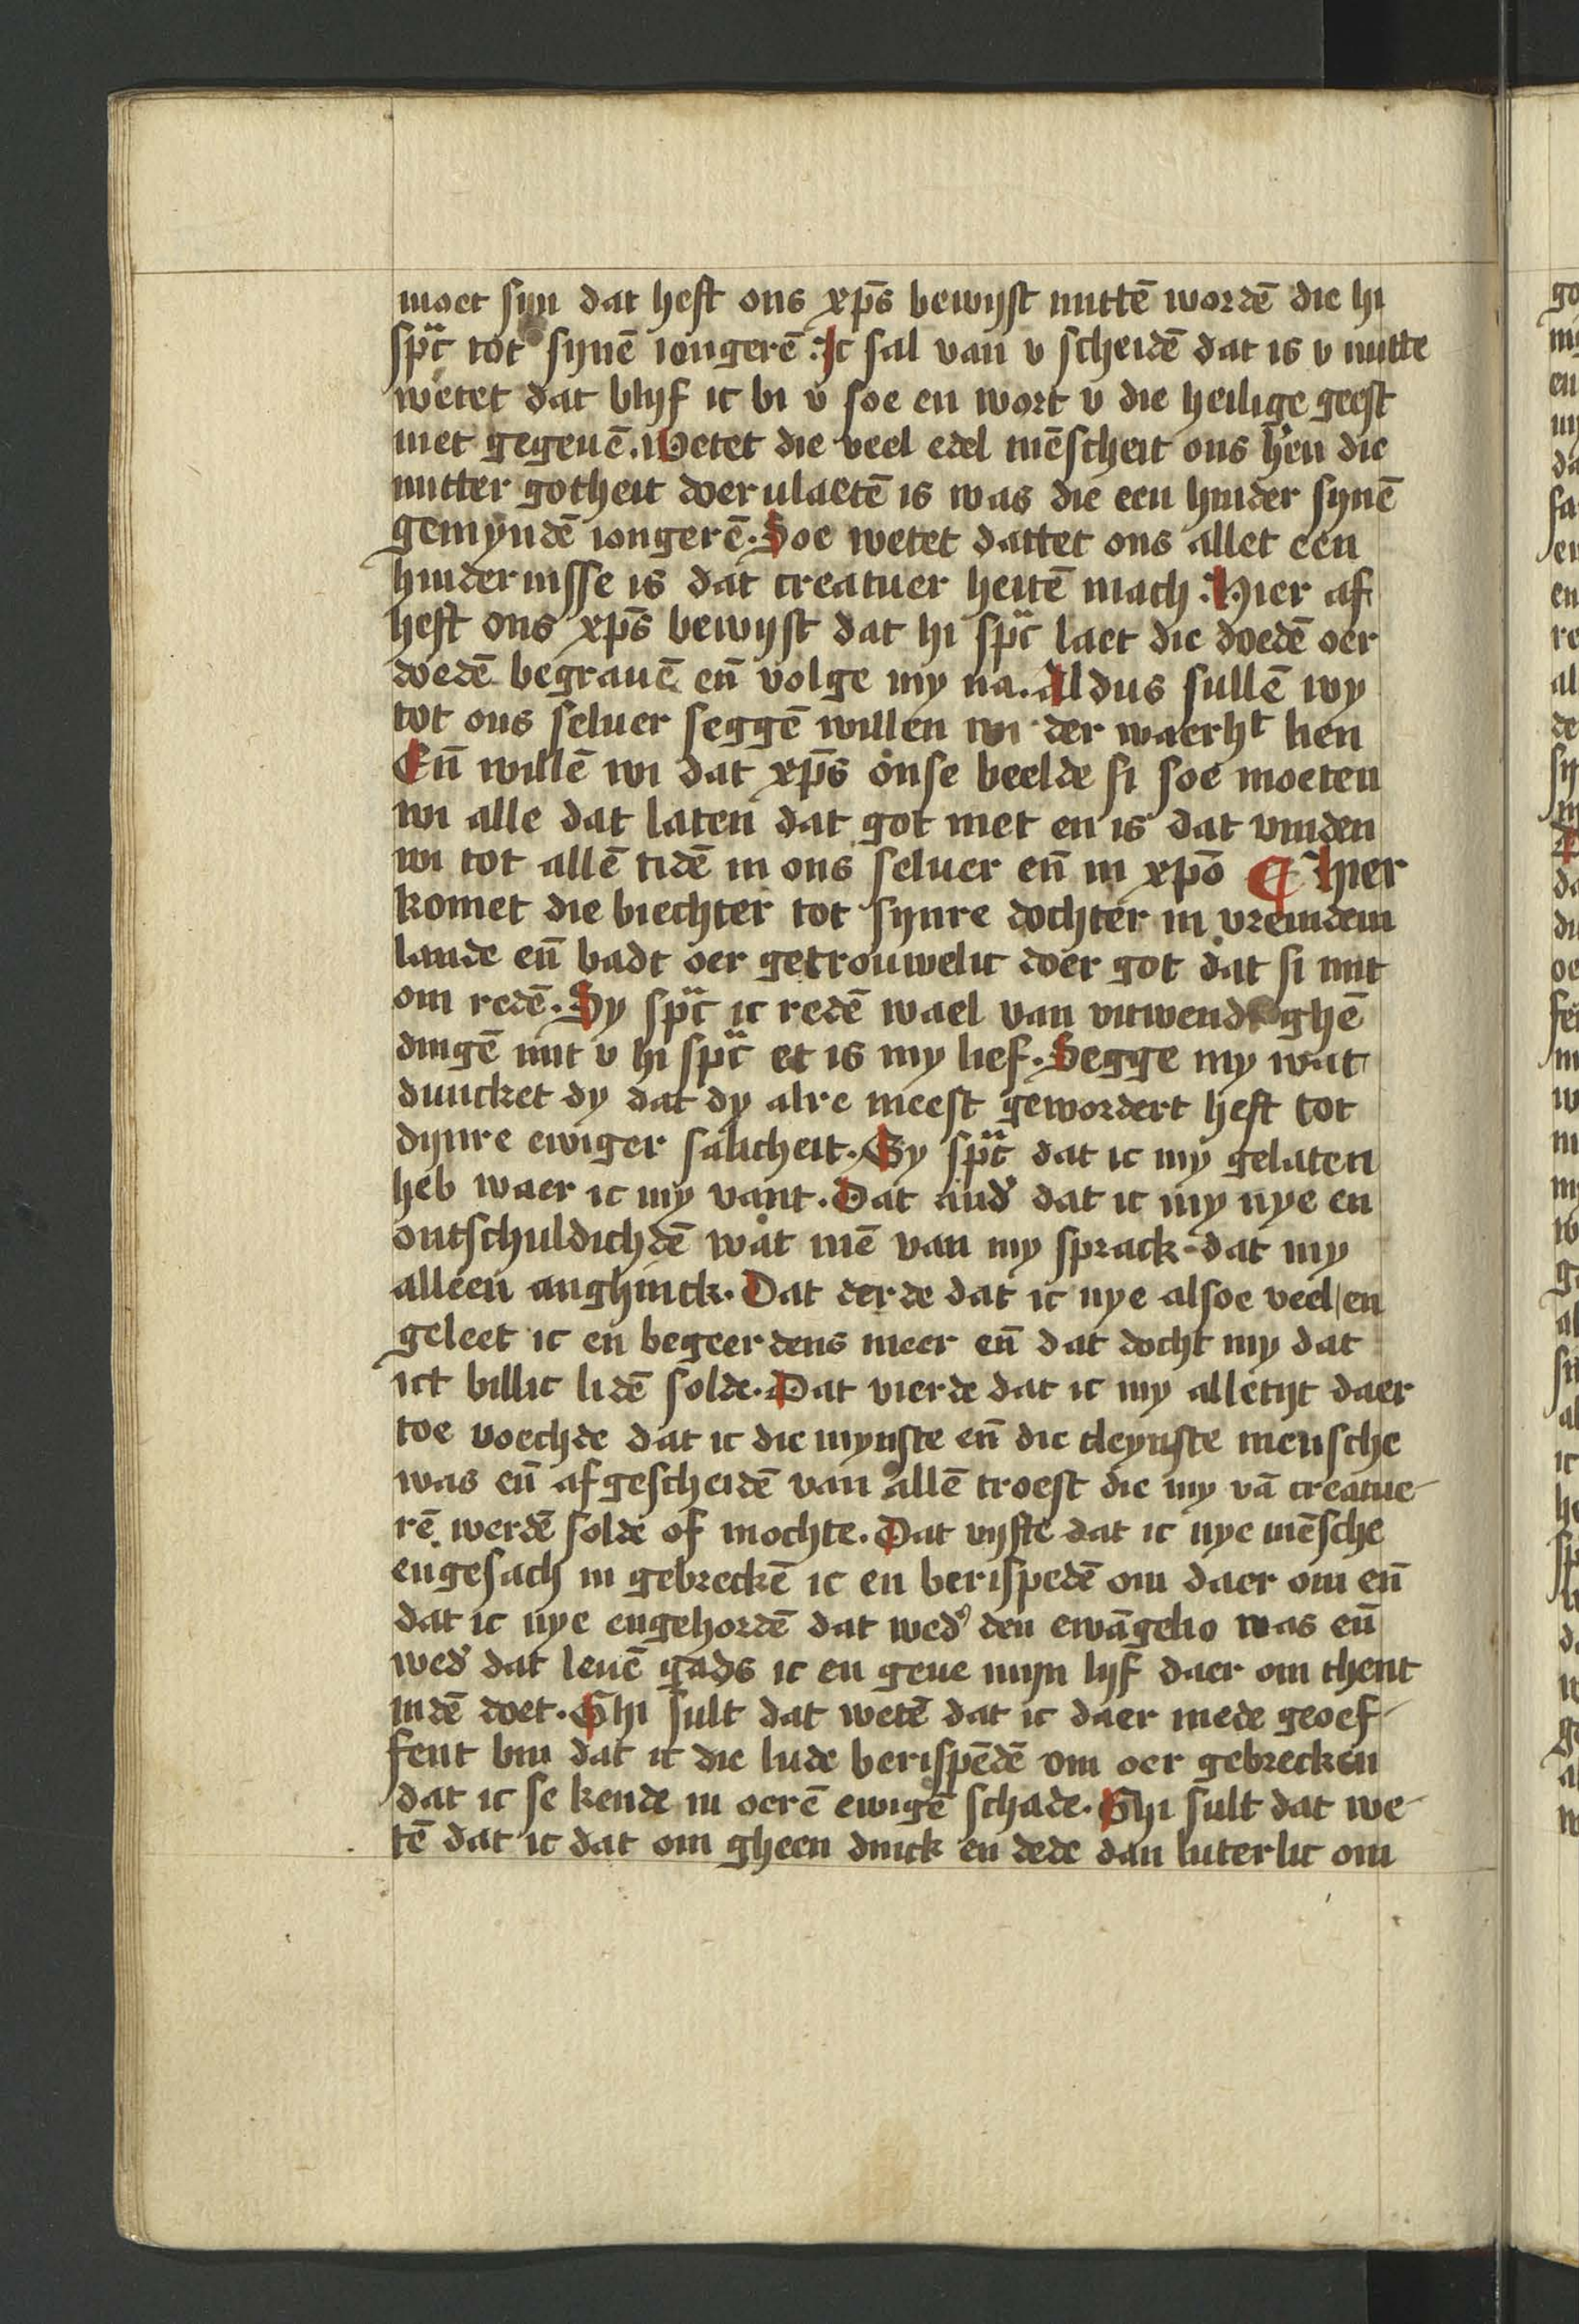 moet sijn dat heft ons xp̄s bewijst mittē wordē die hi
spͣc tot sijnē iongerē. Ic sal van v scheidē dat is v nutte
wetet dat blijf ic bi v soe en wort v die heilige geest
niet gegeuē. Wetet die veel edel mēscheit ons h̄en die
mitter gotheit doer ulaetē is was die een hinder sijnē
gemyndē iongerē. Soe wetet dattet ons allet een
hindernisse is dat creatuer heitē mach. Hier af
heft ons xp̄s bewijst dat hi spͣc laet die doedē oer
doedē begrauē en̄ volge my na. Aldus sullē wy
tot ons seluer seggē willen wi der waerhᵗ lien
En̄ willē wi dat xp̄s onse beelde si soe moeten
wi alle dat laten dat got niet en is dat vinden
wi tot allē tidē in ons seluer en̄ in xp̄o ¶ Hier
komet die biechter tot sijnre dochter in vremdem
lande en̄ badt oer getrouwelic doer got dat si mit
om redē. Sy spͣc ic redē wael van vitwendighē
dingē mit v hi spͣc et is my lief. Segge my wat
duncket dy dat dy alre meest gewordert heft tot
dijnre ewiger salicheit. Sy spͣc dat ic my gelaten
heb waer ic my vant. Dat and̓ dat ic my nye en
ontschuldichdē wat mē van my sprack dat my
alleen anghinck. Dat derde dat ic nye alsoe veel en
geleet ic en begeerdens meer en̄ dat docht my dat
ict billic lidē solde. Dat vierde dat ic my alletijt daer
toe voechde dat ic die mynste en̄ die cleynste mensche
was en̄ afgescheidē van allē troest die my vā creatue-
rē werdē solde of mochte. Dat vijfte dat ic nye mēsche
engesach in gebreckē ic en berispedē om daer om en̄
dat ic nye engehordē dat wed̓ den ewāgelio was en̄
wed̓ dat leuē gads ic en geue mijn lijf daer om thent
indē doet. Ghi sult dat wetē dat ic daer mede geoef-
fent bin dat ic die lude berispēdē om oer gebrecken
dat ic se kende in oerē ewigē schade. Ghi sult dat we-
tē dat ic dat om gheen dinck en dede dan luterlic om